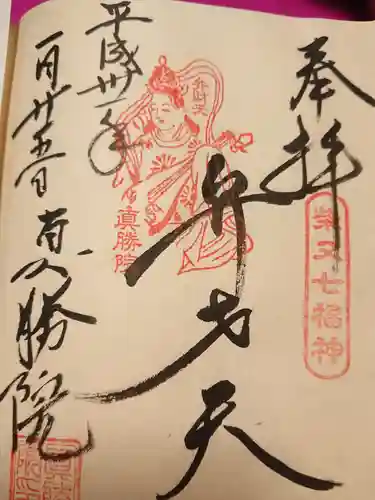 奉拝
柴又七福神
弁才天
弁財天
真勝院
平成卅一年
一月廿五日
真勝院